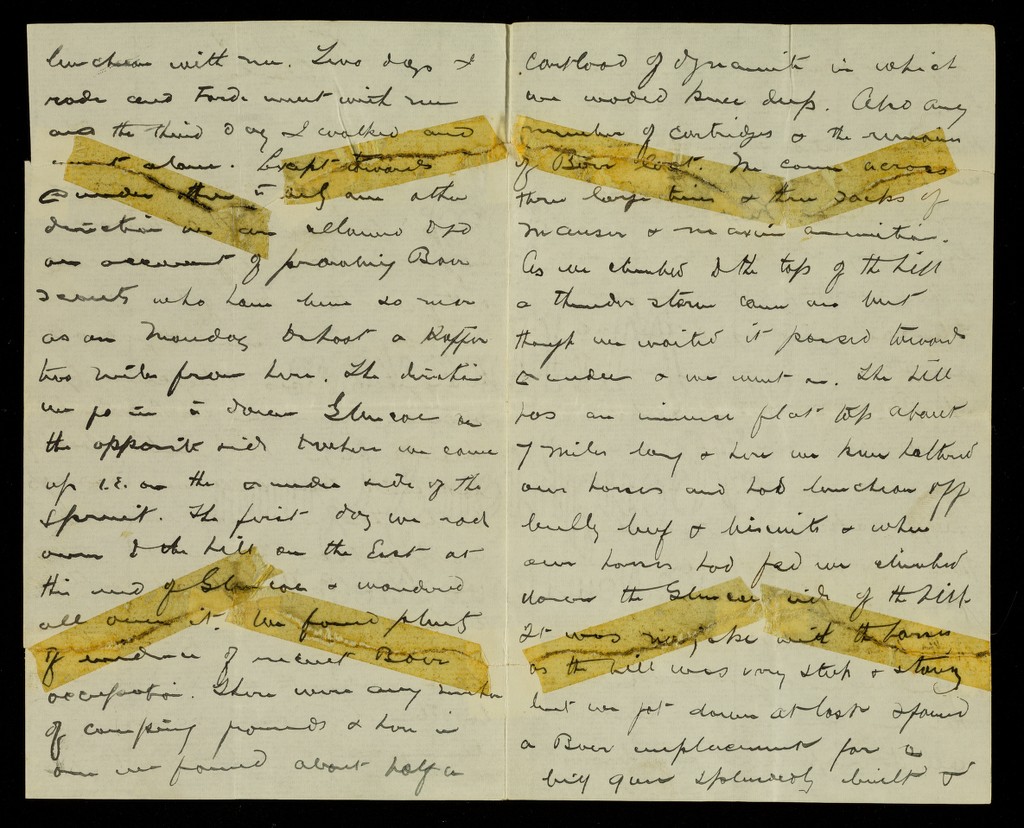 luncheon with me. Two days I
rode and Forde went with me
and the third day I walked and
went alone. Except towards
Dundee there is only one other
direction we are allowed to go
on account of prowling Boer
scouts who have been so near
as on Monday to shoot a Kaffir
two miles from here. The direction
we go in is down Glencoe on
the opposite side to where we came
up i.e. on the Dundee side of the
Spruit. The first day we rode
over to the hill on the East at
this end of Glencoe & wandered
all over it. We found plenty
of evidence of recent Boer
occupation. There were any number
of camping grounds & here in
one we found about half a
cartload of dynamite in which
we waded knee deep. Also any
number of cartridges & the remains
of Boer loot. We came across
three large tins & three sacks of
Mauser & Maxim ammunition.
As we climbed to the top of the hill
a thunder storm came on but
though we waited it passed towards
Dundee & we went on. The hill
has an immense flat top about
7 miles long & here we knee haltered
our horses and had luncheon off
bully beef & biscuits & when
our horses had fed we climbed
down the Glencoe side of the hill.
It was no joke with the horses
as the hill was very steep & stony
but we got down at last & found
a Boer emplacement for a
big gun splendidly built &